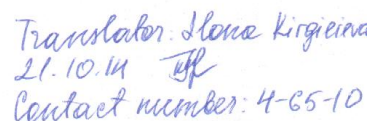 Translator: Ilona
21.10.14
Contact number: 4-65-10